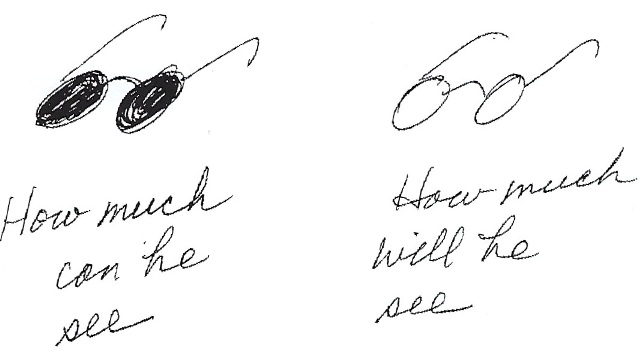 How much
can he
see
How much
will he
see